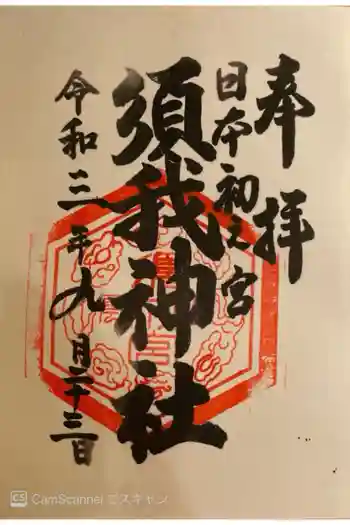 奉拝
日本初之宮
須我神社
令和三年九月二十三日
CS CamScanner でスキャン